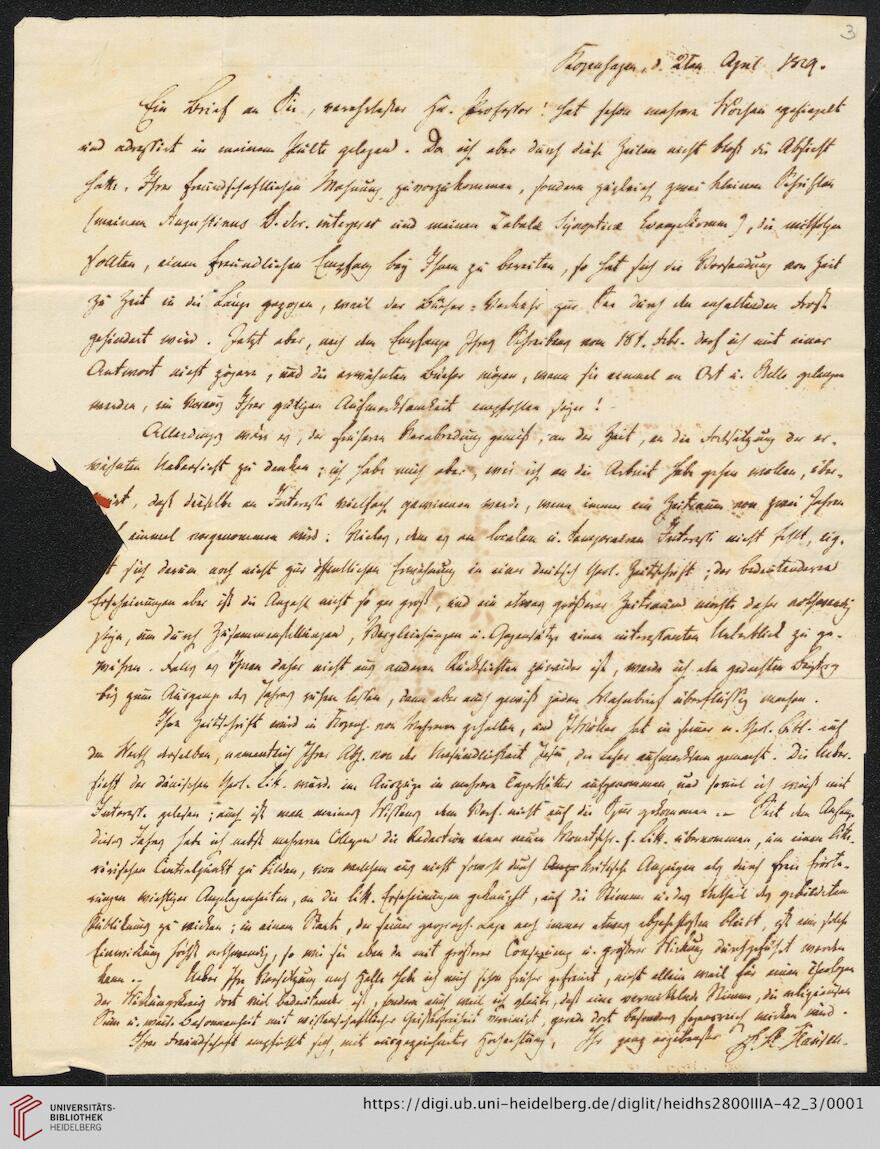 3
Kopenhagen, d. 2ten April 1829.
Ein Brief an Sie, verehrtester Hr. Professor! hat schon mehrere Wochen gesiegelt
und adressirt in meinem Pulte gelegen. Da ich aber durch diese Zeilen nicht bloß die Absicht
hatte, Ihrer freundschaftlichen Mahnung zuvorzukommen, sondern zugleich zwei kleinen Schriften
(meinem Augustinus S. Scr. interpres und meinen Tabulae Synopticae Evangeliorum), die mitfolgen
sollten, einen freundlichen Empfang bey Ihnen zu bereiten, so hat sich die Versendung von Zeit
zu Zeit in die Länge gezogen, weil der Bücher-Verkehr zur See durch den anhaltenden Frost
gehindert wird. Jetzt aber, nach dem Empfange Ihres Schreibens vom 18t. Febr. darf ich mit einer
Antwort nicht zögern, und die erwähnten Bücher mögen, wenn sie einmal an Ort u. Stelle gelangen
werden, im Voraus Ihrer gütigen Aufmerksamkeit empfohlen seyn!
Allerdings wäre es, der früheren Verabredung gemäß, an der Zeit, an die Fortsetzung der er-
wähnten Uebersicht zu denken; ich habe mich aber, wie ich an die Arbeit habe gehen wollen, über-
daß dieselbe an Interesse vielfach gewinnen werde, wenn immer ein Zeitraum von zwei Jahren
einmal vorgenommen wird. Vieles, dem es an localem u. temporärem Interesse nicht fehlt, eig-
sich darum noch nicht zur öffentlichen Erwähnung in einer deutsch theol. Zeitschrift; der bedeutenderen
Erscheinungen aber ist die Anzahl nicht so gar groß, und ein etwas größerer Zeitraum möchte daher nothwendig
seyn, um durch Zusammenstellungen, Vergleichungen u. Gegensätze einen interessanten Ueberblick zu ge-
währen. Falls es Ihnen daher nicht aus anderen Rücksichten zuwider ist, werde ich den gedachten Beytrag
bis zum Ausgange des Jahres ruhen lassen, dann aber auch gewiß jeden Mahnbrief überflüssig machen.
Ihre Zeitschrift wird in Kopenh. von Mehreren gehalten, und J. Möller hat in seiner n. theol. Bibl. auf
den Werth derselben, namentlich Ihrer Abh. von der Unsündlichkeit Jesu, die Leser aufmerksam gemacht. Die Ueber-
sicht der dänischen theol. Lit. wurde im Auszuge in mehrere Tageblätter aufgenommen, und soviel ich weiß mit
Interesse gelesen; auch ist man meines Wissens dem Verf. nicht auf die Spur gekommen. – Seit dem Anfange
dieses Jahres habe ich nebst mehreren Collegen die Redaction einer neuen Monatschr. f. Litt. übernommen, um einen litte-
rärischen Centralpunkt zu bilden, von welchem aus nicht sowohl durch kritische Anzeigen als durch freie Erörte-
rungen wichtiger Angelegenheiten, an die litt. Erscheinungen geknüpft, auf die Stimme u. das Urtheil des gebildeten
Publikums zu wirken; in einem Staate, der seiner geograph. Lage nach immer etwas abgeschlossen bleibt, ist eine solche
Einwirkung höchst nothwendig, so wie sie eben da mit größerer u. größerer Wirkung durchgeführt werden
kann. – Ueber Ihre Versetzung nach Halle habe ich mich schon früher gefreut, nicht allein weil für einen Theologen
der Wirkungskreis dort viel bedeutender ist, sondern auch weil ich glaube, daß eine vermittelnde Stimme, die religiösen
Sinn u. weise Besonnenheit mit wissenschaftlicher Geistesfreiheit vereinigt, gerade dort besonders segensreich wirken wird.
Ihrer Freundschaft empfiehlt sich, mit ausgezeichneter Hochachtung, Ihr ganz ergebenster Clausen.
UNIVERSITÄTS-
BIBLIOTHEK
HEIDELBERG
https://digi.ub.uni-heidelberg.de/diglit/heidhs2800IIIA-42_3/0001